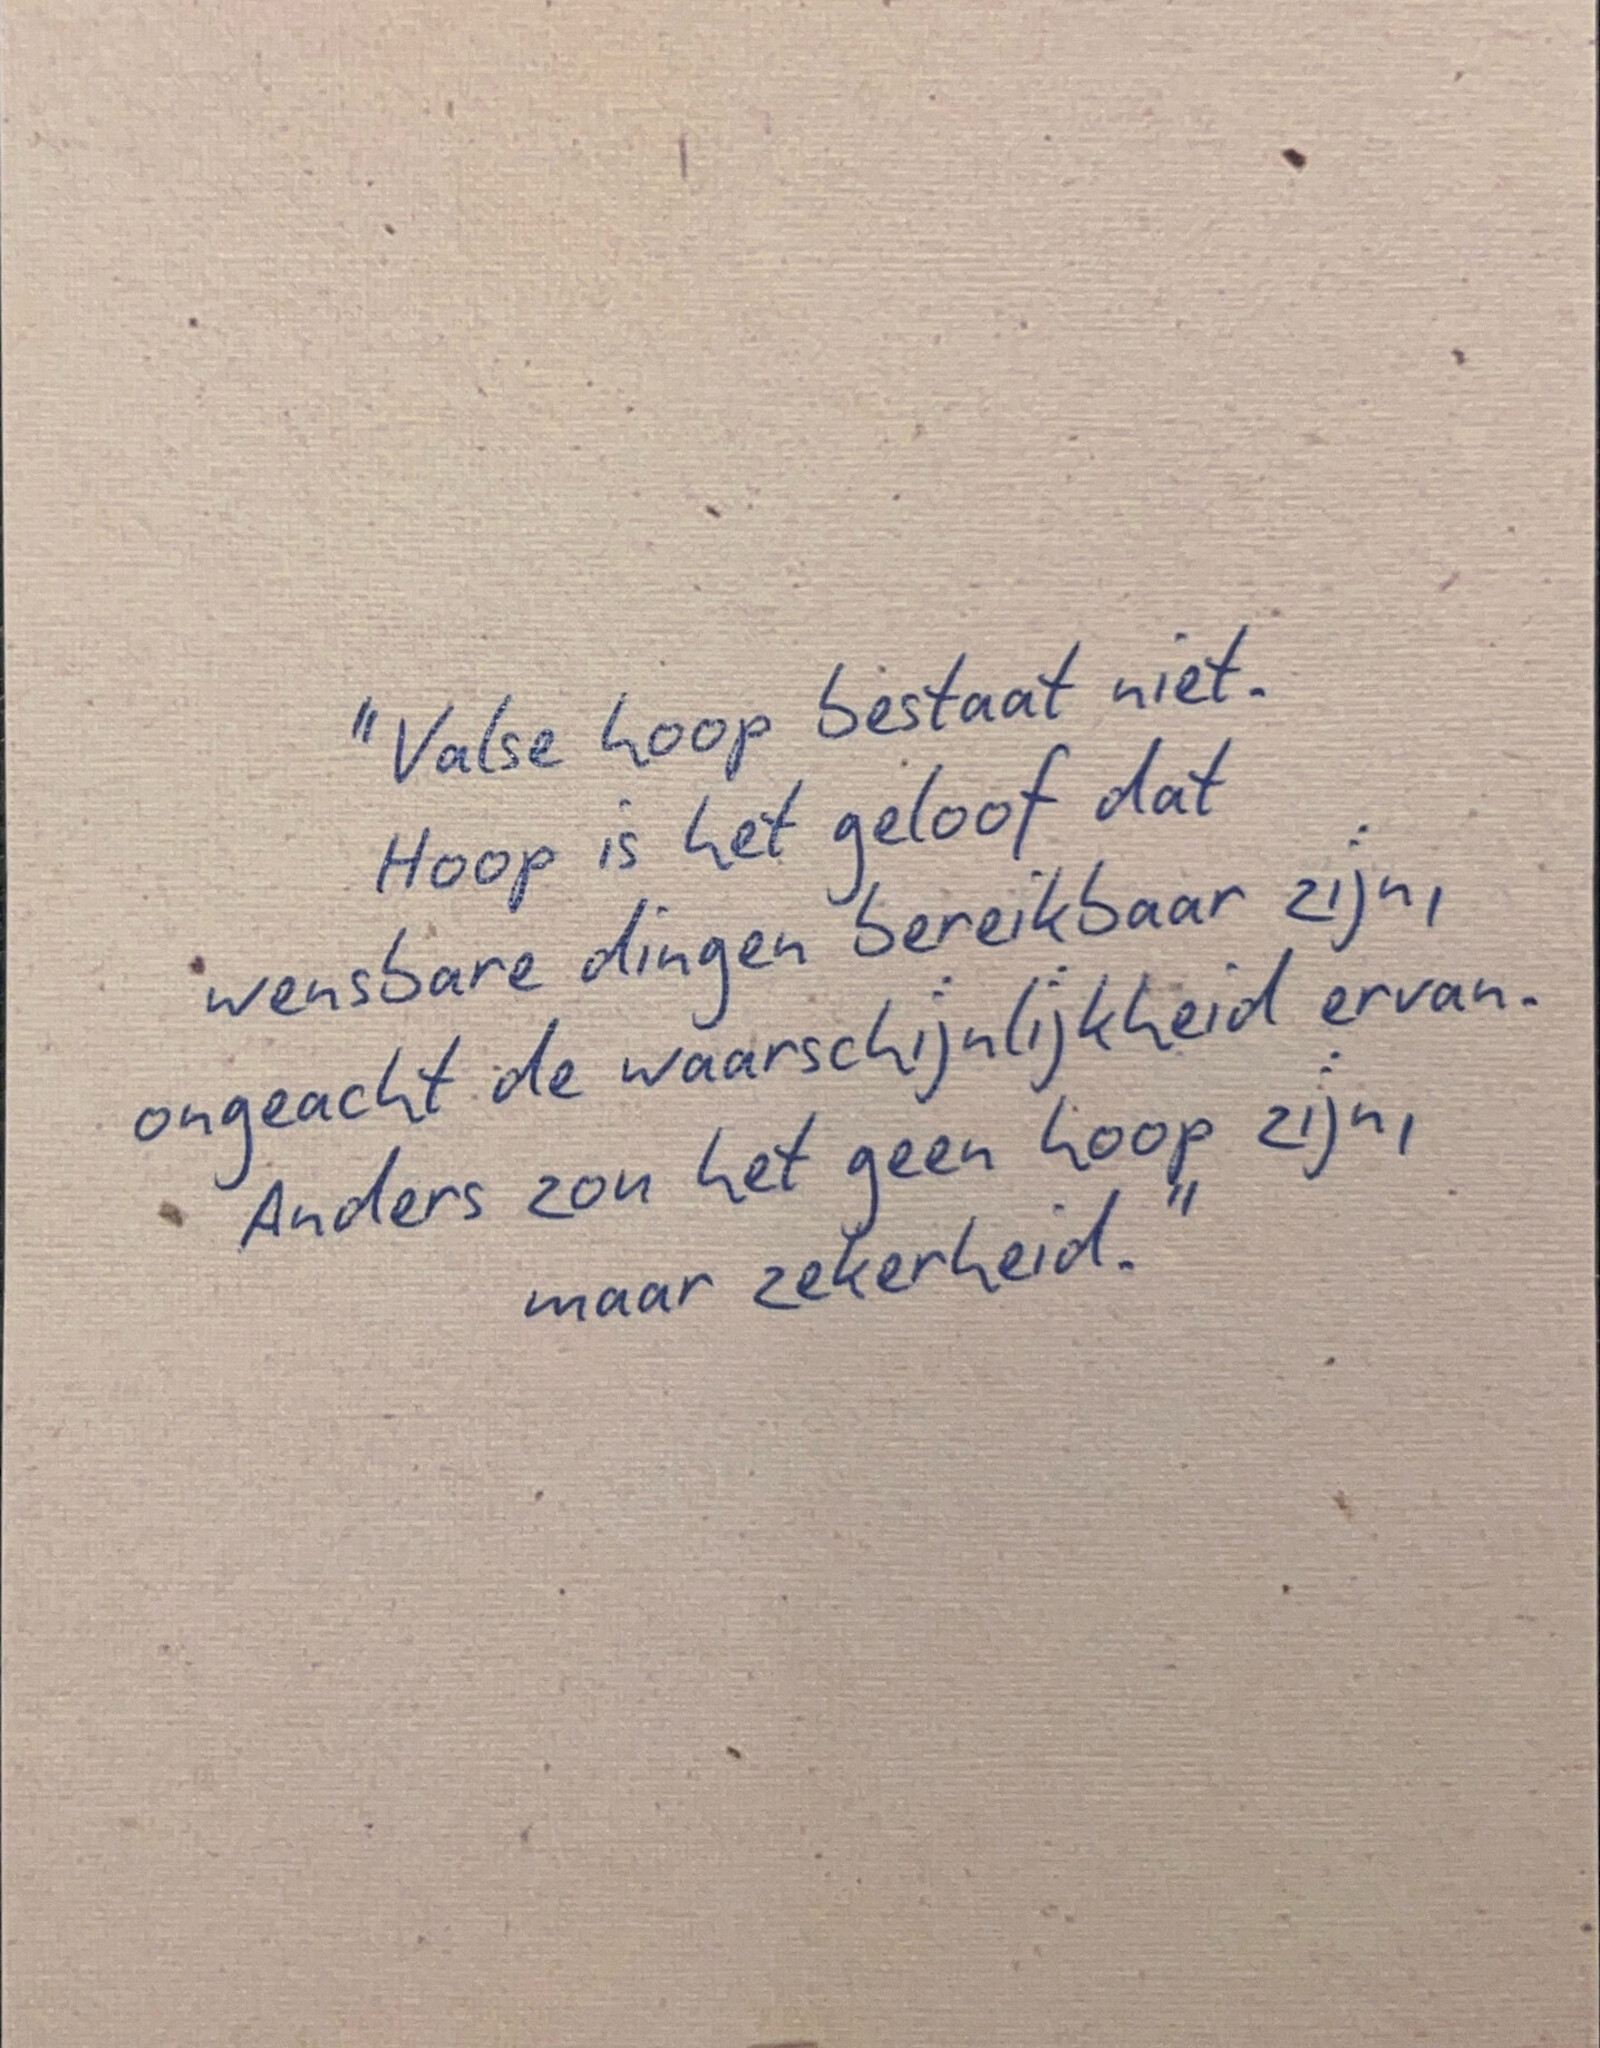 "Valse hoop bestaat niet.
Hoop is het geloof dat
wensbare dingen bereikbaar zijn,
ongeacht de waarschijnlijkheid ervan.
Anders zou het geen hoop zijn,
maar zekerheid."